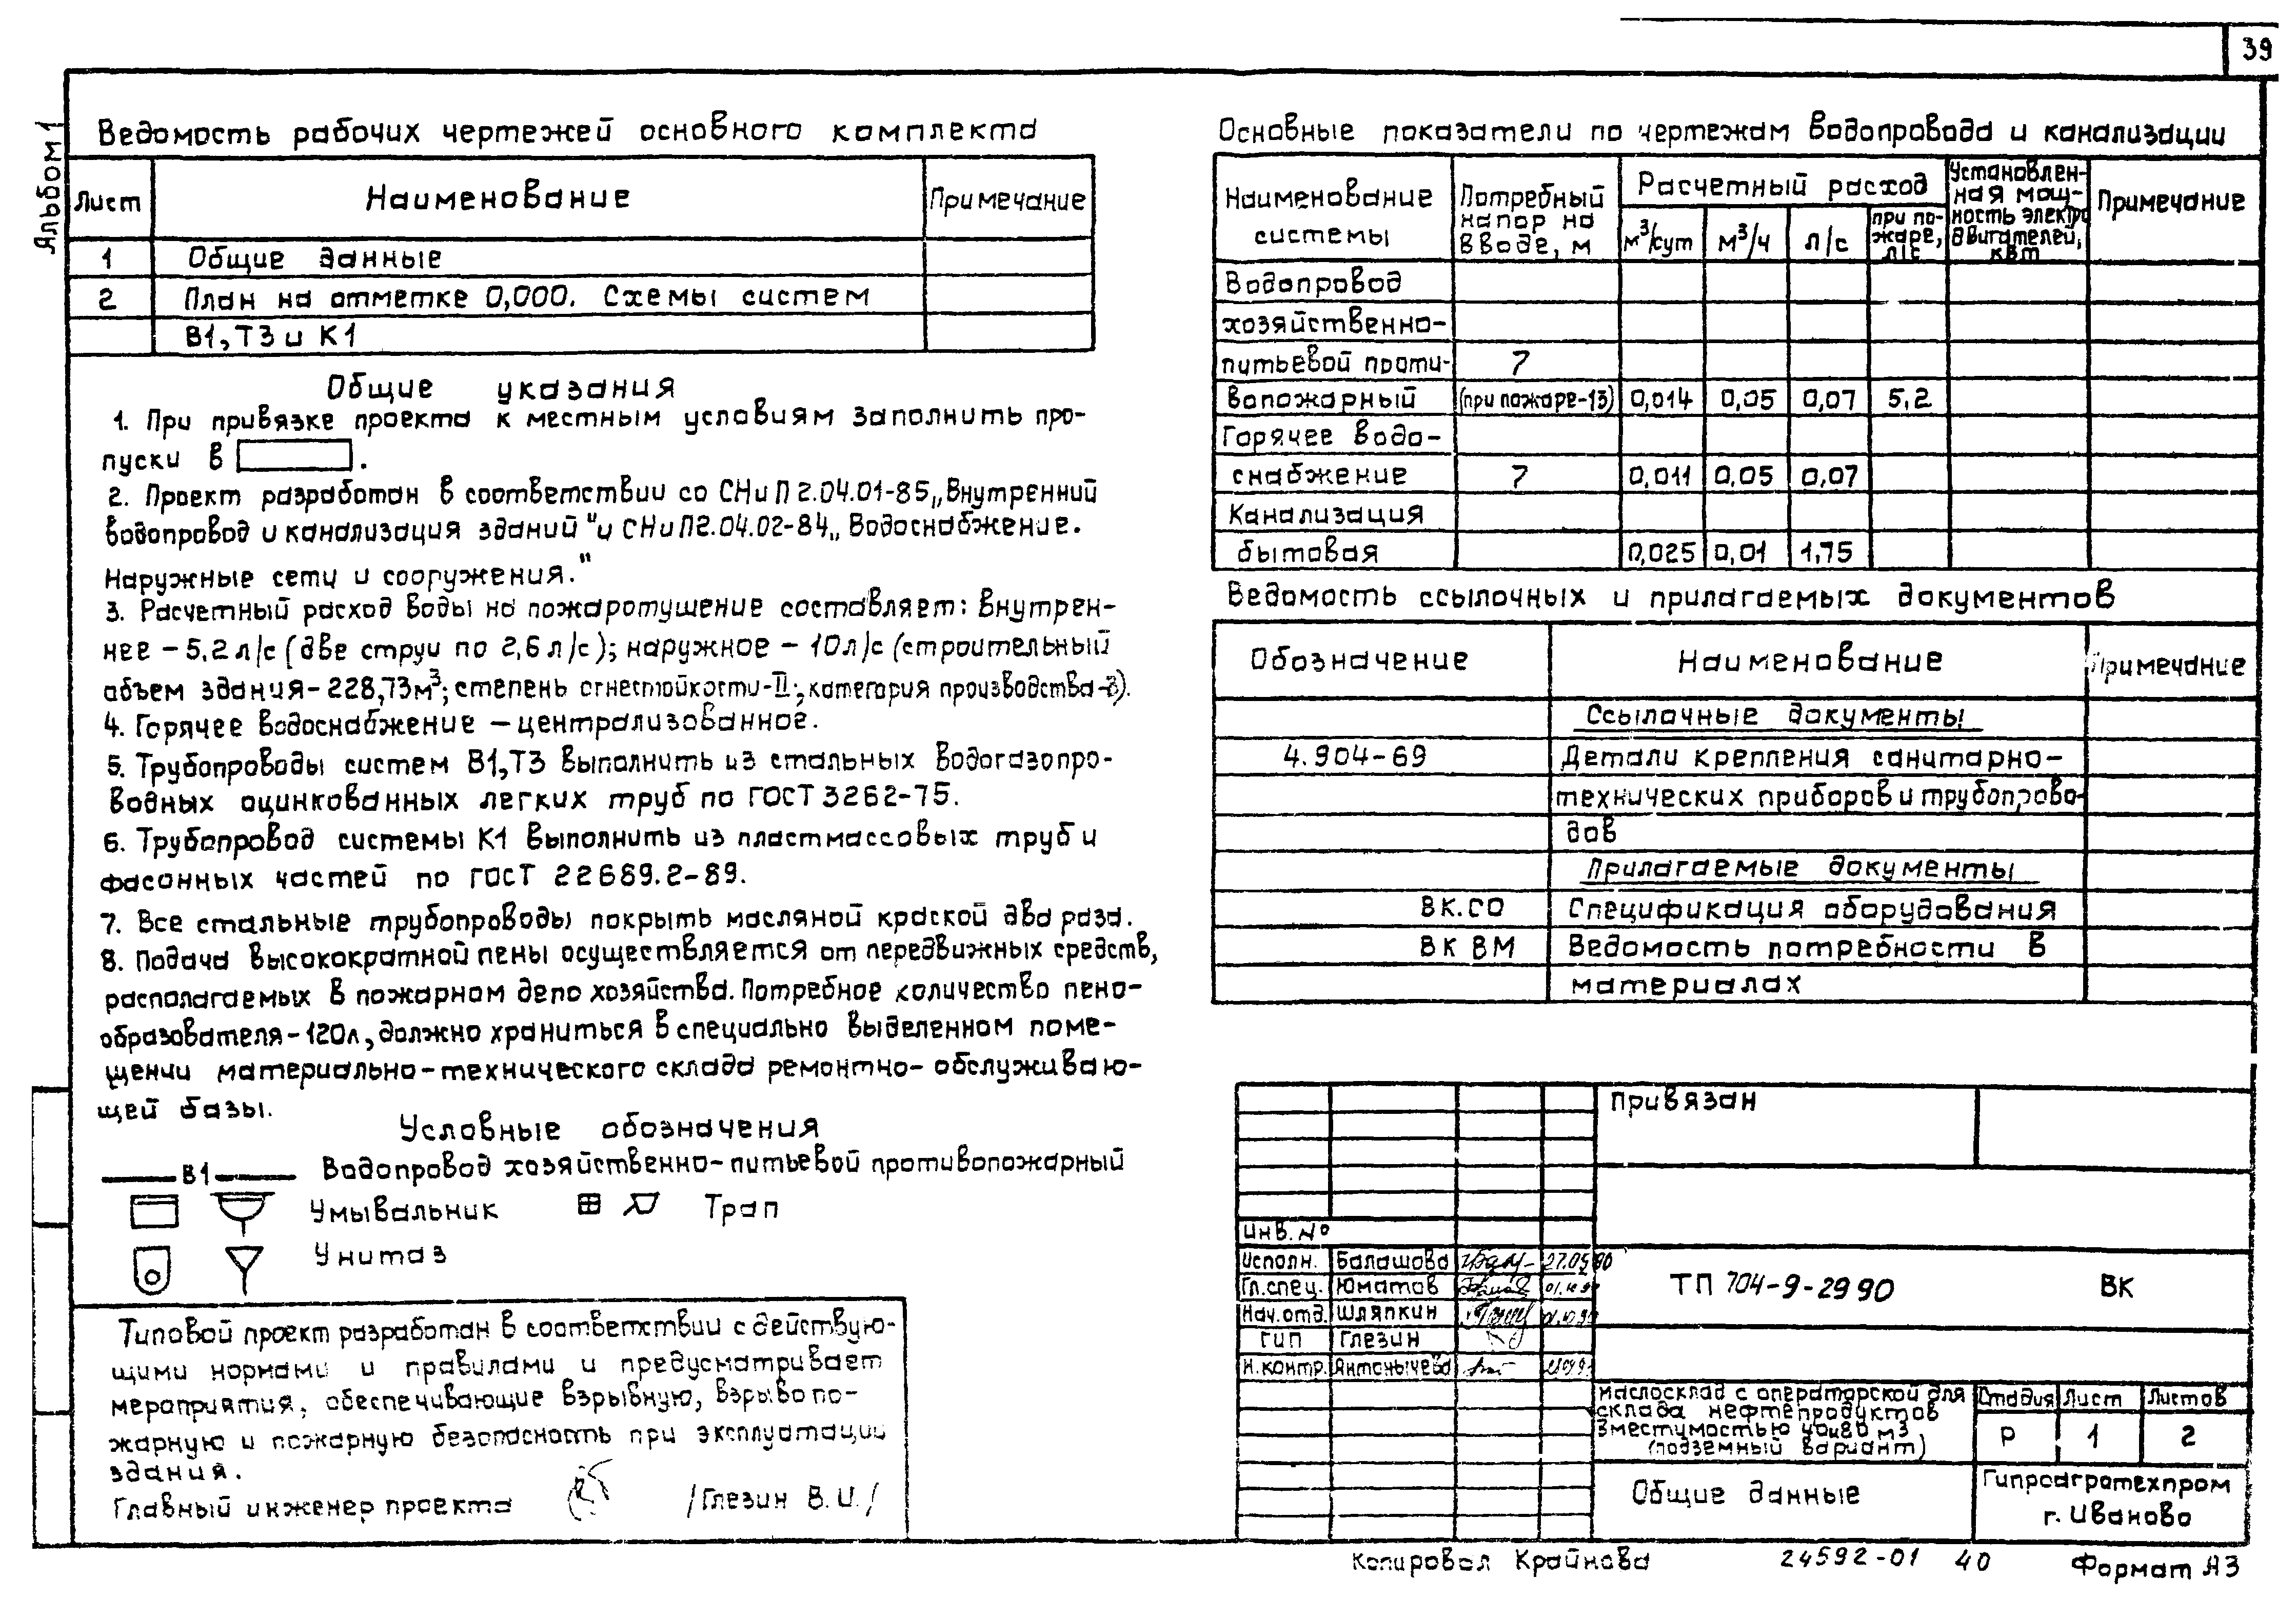 39
Альбом 1
Ведомость рабочих чертежей основного комплекта
Лист Наименование Примечание
1 Общие данные
2 План на отметке 0,000. Схемы систем
В1, Т3 и К1
Общие указания
1. При привязке проекта к местным условиям заполнить про-
пуски в .
2. Проект разработан в соответствии со СНиП 2.04.01-85 „Внутренний
водопровод и канализация зданий" и СНиП 2.04.02-84 „Водоснабжение.
Наружные сети и сооружения."
3. Расчетный расход воды на пожаротушение составляет: внутрен-
нее - 5,2 л/с (две струи по 2,6 л/с); наружное - 10 л/с (строительный
объем здания - 228,73 м³; степень огнестойкости - II; категория производства - В).
4. Горячее водоснабжение - централизованное.
5. Трубопроводы систем В1, Т3 выполнить из стальных водогазопро-
водных оцинкованных легких труб по ГОСТ 3262-75.
6. Трубопровод системы К1 выполнить из пластмассовых труб и
фасонных частей по ГОСТ 22689.2-89.
7. Все стальные трубопроводы покрыть масляной краской два раза.
8. Подача высокократной пены осуществляется от передвижных средств,
располагаемых в пожарном депо хозяйства. Потребное количество пено-
образователя - 120л, должно храниться в специально выделенном поме-
щении материально-технического склада ремонтно-обслуживаю-
щей базы.
Условные обозначения
В1 Водопровод хозяйственно-питьевой противопожарный
Умывальник Трап
Унитаз
Типовой проект разработан в соответствии с действую-
щими нормами и правилами и предусматривает
мероприятия, обеспечивающие взрывную, взрывопо-
жарную и пожарную безопасность при эксплуатации
здания.
Главный инженер проекта /Глезин В.И./
Основные показатели по чертежам водопровода и канализации
Наименование системы Потребный напор на вводе, м Расчетный расход Установлен-ная мощ-ность электродвигателей, квт Примечание
м³/сут м³/ч л/с при по-жаре, л/с
Водопровод
хозяйственно-
питьевой проти- 7
вопожарный (при пожаре-13) 0,014 0,05 0,07 5,2
Горячее водо-
снабжение 7 0,011 0,05 0,07
Канализация
бытовая 0,025 0,01 1,75
Ведомость ссылочных и прилагаемых документов
Обозначение Наименование Примечание
Ссылочные документы
4.904-69 Детали крепления санитарно-
технических приборов и трубопрово-
дов
Прилагаемые документы
ВК.СО Спецификация оборудования
ВК ВМ Ведомость потребности в
материалах
Привязан
Инв. №
Исполн. Балашова 27.09.90
Гл.спец. Юматов
Нач.отд. Шляпкин
ГИП Глезин
Н.контр. Антонычева
ТП 704-9-29 90 ВК
Маслосклад с операторской для
склада нефтепродуктов
вместимостью 40и80 м3
(подземный вариант)
Стадия Лист Листов
Р 1 2
Общие данные
Гипроагротехпром
г. Иваново
Копировал Крайнова 24592-01 40 Формат А3